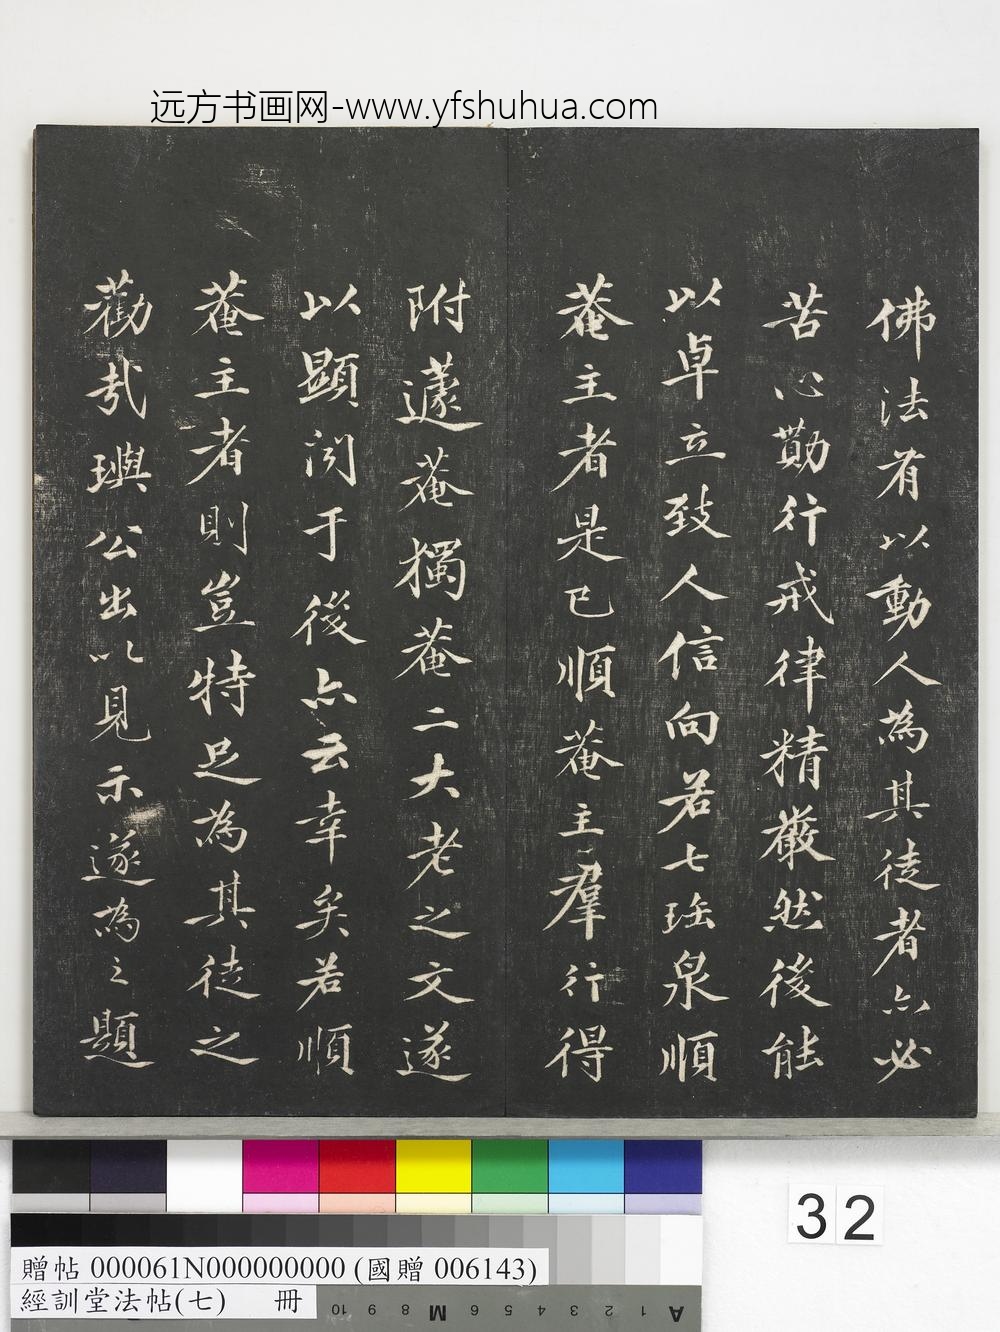 远方书画网-www.yfshuhua.com
佛法有以動人為其徒者亦必
苦心勤行戒律精嚴然後能
以卓立致人信向若七珤泉順
菴主者是已順菴主羣行得
附蘧菴獨菴二大老之文遂
以顯闻于後亦云幸矣若順
菴主者則豈特足為其徒之
勸哉璵公出以見示遂為之題
32
贈帖 000061N000000000 (國贈 006143)
經訓堂法帖(七) 冊
10 9 8 M 6 5 4 3 2 1 A